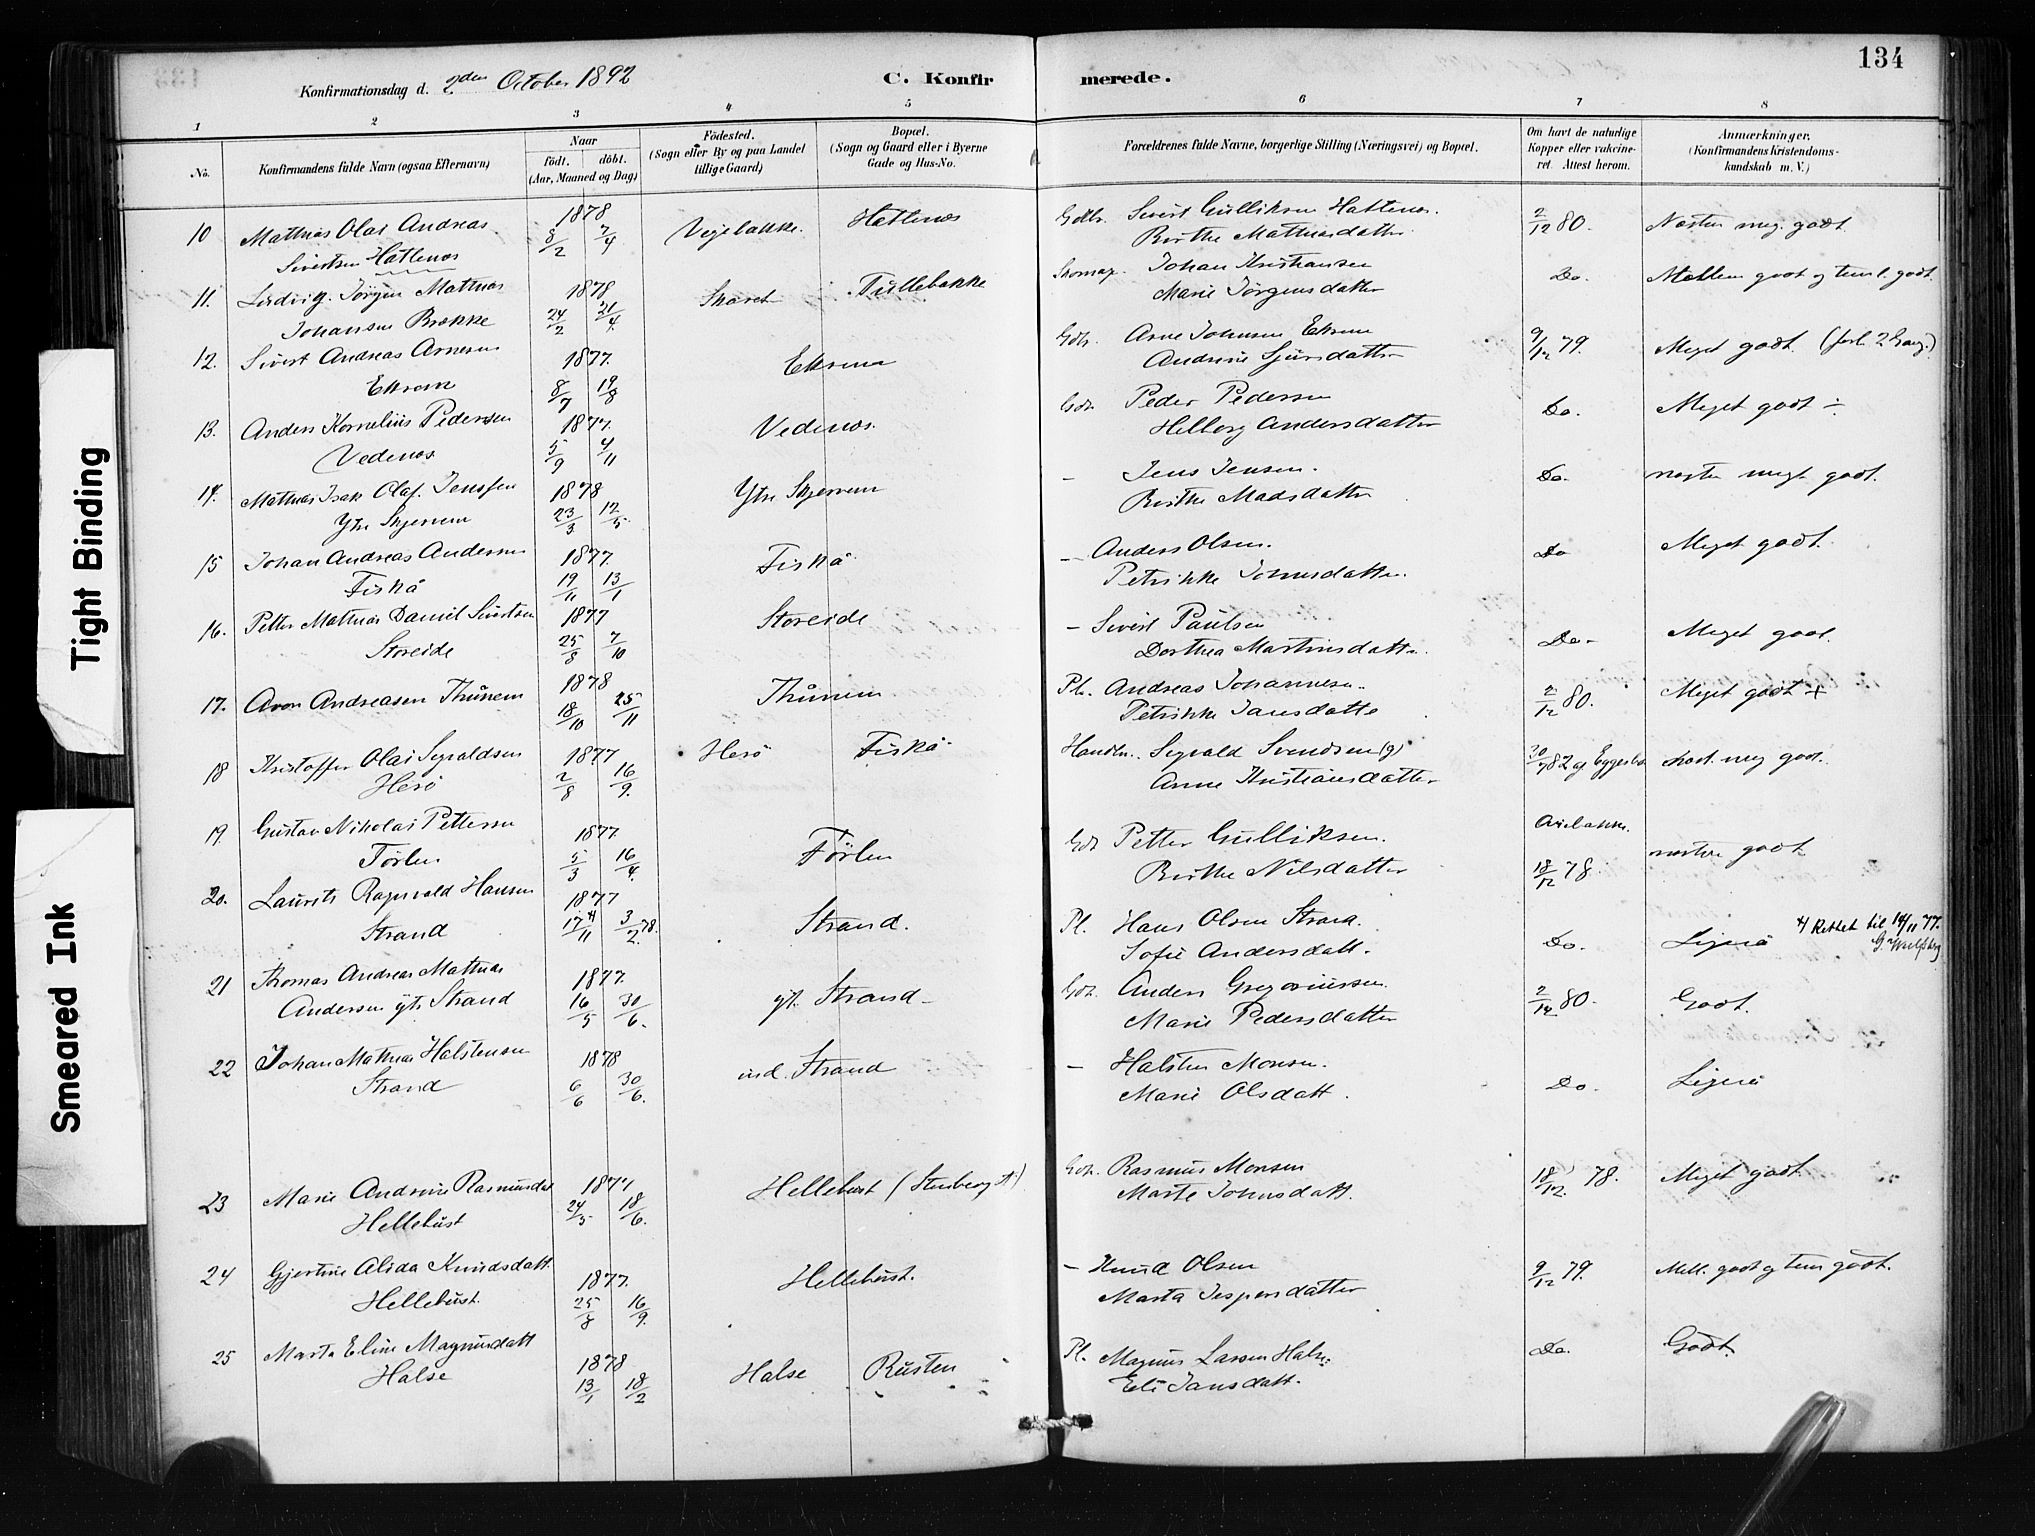 134
Konfirmationsdag d. 2den October 1892
C. Konfirmerede.
1 2 3 4 5 6 7 8
No.
Konfirmandens fulde Navn (ogsaa Efternavn)
Naar
födt. döbt.
(Aar, Maaned og Dag)
Födested.
(Sogn eller By og paa Landet
tillige Gaard)
Bopæl.
(Sogn og Gaard eller i Byerne
Gade og Hus-No.
Forældrenes fulde Navne, borgerlige Stilling (Næringsvei) og Bopæl.
Om havt de naturlige
Kopper eller vakcine-
ret. Attest herom.
Anmærkninger.
(Konfirmandens Kristendoms-
kundskab m. V.)
10 Matthias Olai Andreas 1878 Vejebakke. Hatlenæs Gdbr. Sivert Gulliksen Hatlenæs. 2/12 80. Næsten meg. godt
Sivertsen Hatlenæs 8/2 7/4 Birthe Mathiasdatter
11. Ludvig Jörgen Mathias 1878 Skaret Tullebakke Skomag. Johan Kristiansen Do. Mellem godt og teml. godt.
Johansen Brække 24/2 21/4 Marie Jörgensdatter
12. Sivert Andreas Arnesen 1877. Ekrem Gdbr. Arne Johnsen Ekrem 9/12 79. Meget godt.
Ekrem 8/7 19/8 Andrine Sjursdatter
13. Anders Kornelius Pedersen 1877. Vedenæs. Gdb. Peder Pedersen Do. Meget godt ÷
Vedenæs 5/9 4/11 Helborg Andersdatter
14. Mathias Isak Olaf Jenssen 1878 Ytre Skjerrem - Jens Jensen. Do. næsten meget godt.
Ytre Skjerrem 23/3 12/5 Birthe Madsdatter
15 Johan Andreas Andersen 1877. Fiskå - Anders Olsen. Do Meget godt.
Fiskå 19/11 13/1 Petrikke Johnsdatter.
16. Petter Mathias Daniel Sivertsen 1877 Storeide - Sivert Paulsen Do- Meget godt.
Storeide 25/8 7/10 Dorthea Martinsdatter.
17. Aron Andreasen Thunem 1878 Thunem Pl. Andreas Johannesen. 2/12 80. Meget godt +
18/10 25/11 Petrikke Jansdatter
18 Kristoffer Olai Sigvaldsen 1877 Herö Fiskå Handlm. Sigvald Svendsen (g) 30/7 82 af meg godt.
Herö 2/8 16/9. Anne Kristiansdatter
19. Gustav Nikolai Pettersen 1877. Törlen Gdb Petter Gulliksen. næsten godt
Törlen 5/3 16/4. Birthe Nilsdatter 18/12 78.
20. Laurits Ragnvald Hansen 1877 Strand. Pl. Hans Olsen Strand. Do. Ligeså +) Rettet til 14/11 77.
Strand 17+/11 3/2 78. Sofie Andersdatt.
21 Thomas Andreas Mathias 1877. yt. Strand - Gdb. Anders Gregoriussen. 2/12 80. Godt.
Andersen ytr Strand 16/5 30/6. Marie Pedersdatter
22 Johan Mathias Halstensen 1878 ind. Strand - Halsten Monsen. Do. Ligeså
Strand 6/6 30/6. Marie Olsdatt.
23 Marie Andrine Rasmusdat 1877 Hellebust Gdb. Rasmus Monsen 18/12. 78. Meget godt.
Hellebust 24/5 18/6. Marte Johnsdatt.
24 Gjertine Alida Knudsdatt. 1877. Hellebust. - Knud Olsen 9/12 79. Mell. godt og tem godt.
Hellebust. 25/8 16/9. Marta Jespersdatter
25 Marta Eline Magnusdatt 1878 Halse Rusten Pl. Magnus Larsen Halse. Do. Godt.
Halse 13/1 18/2 Eli Jansdatt.
Tight Binding
Smeared Ink